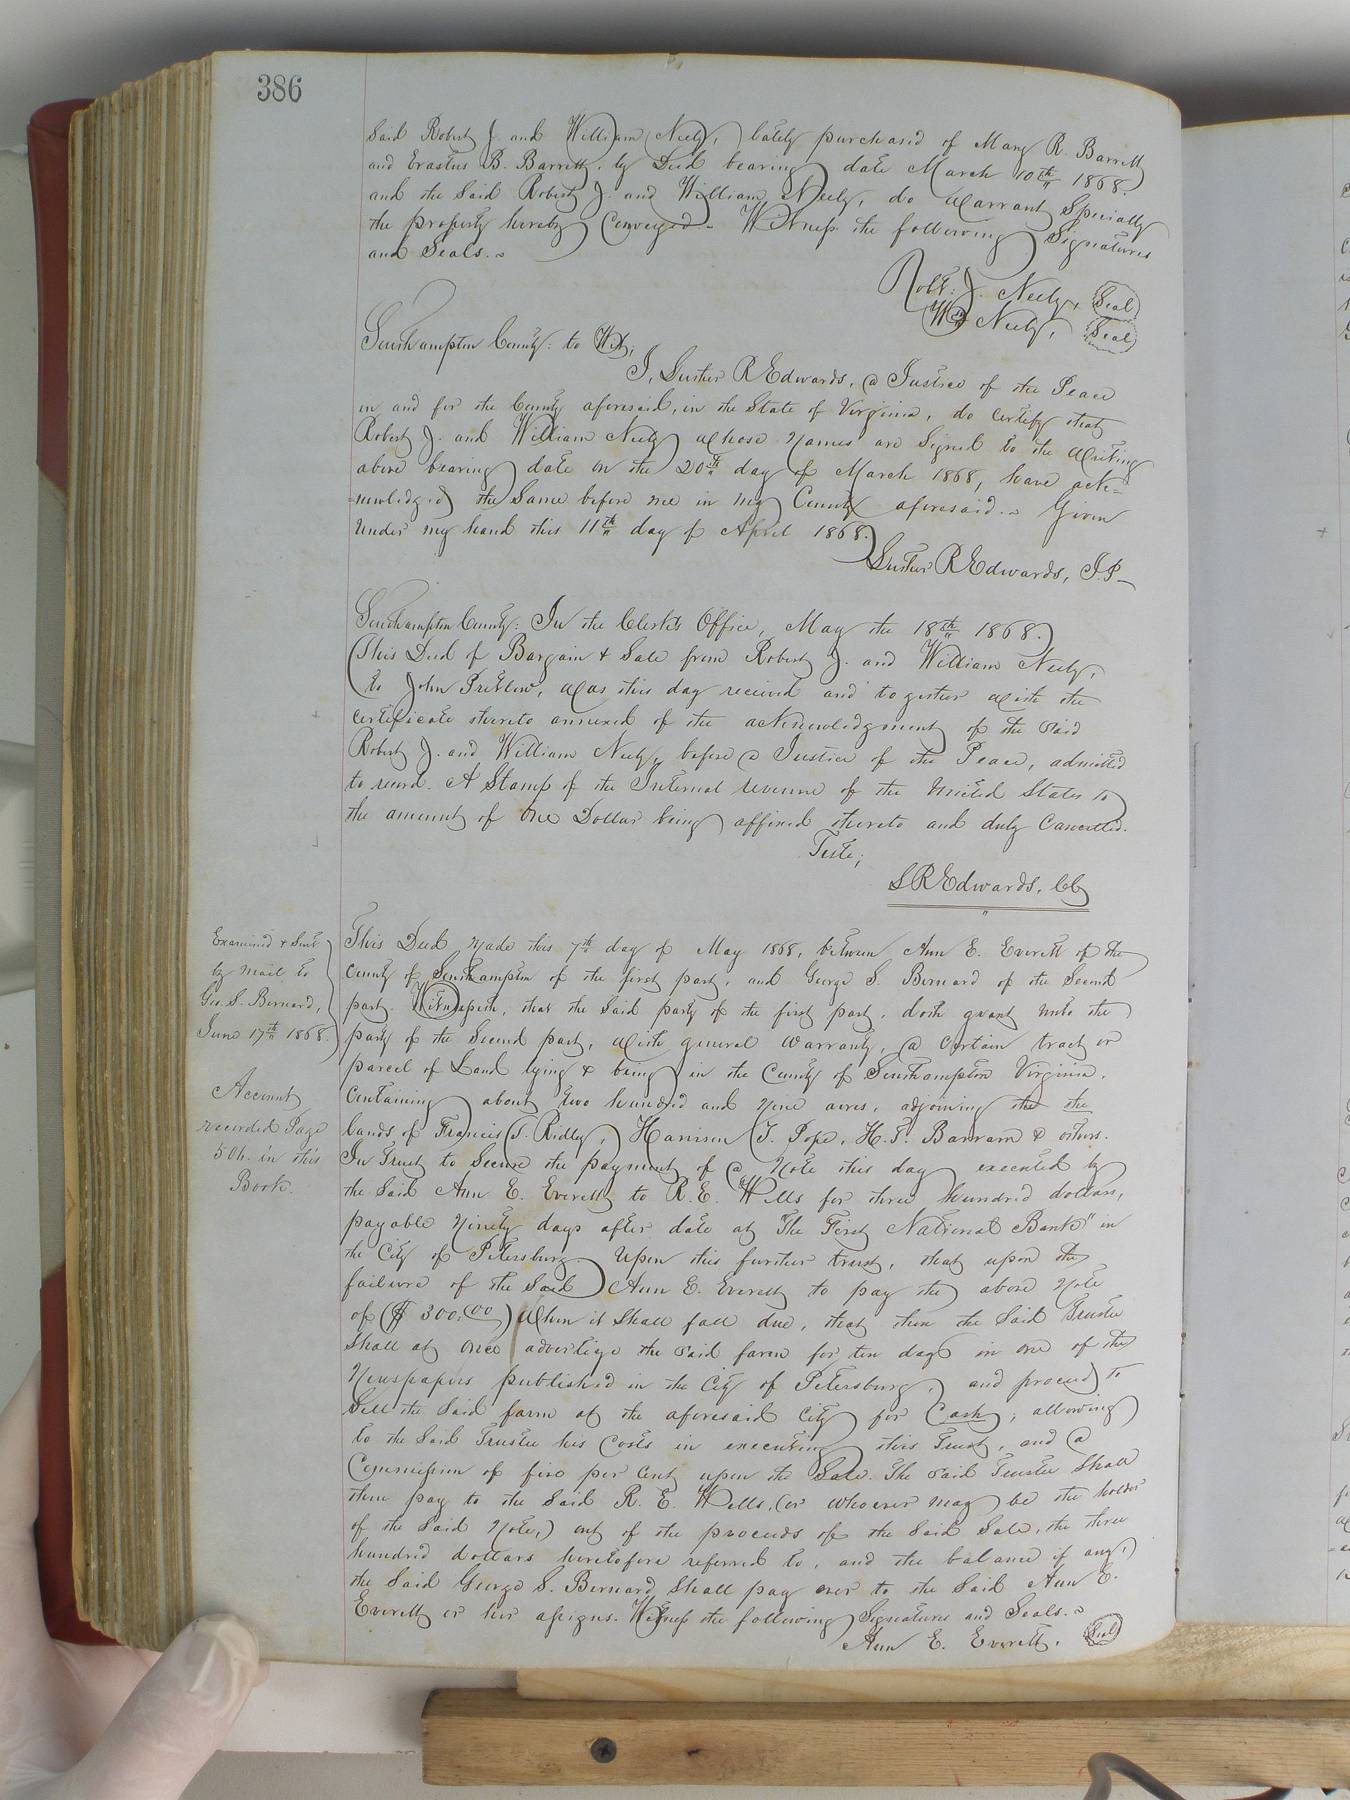 386
said Robert J. and William Neely, lately purchased of Mary R. Barrett
and Erastus B. Barrett, by Deed bearing date March 10th 1868.
and the said Robert J. and William Neely, do warrant specially
the property hereby conveyed. Witness the following signatures
and seals.
Robt. J. Neely, Seal
Wm Neely, Seal
Southampton County: to Wit;
I, Luther R Edwards, a Justice of the Peace
in and for the County aforesaid, in the State of Virginia, do certify that
Robert J. and William Neely whose names are signed to the writing
above bearing date on the 20th day of March 1868, have ack=
=nowledged the same before me in my County aforesaid. Given
under my hand this 11th day of April 1868.
Luther R Edwards, J.P.
Southampton County: In the Clerk's Office, May the 18th 1868.
This Deed of Bargain & Sale from Robert J. and William Neely,
to John Pretlow, was this day received and together with the
certificate thereto annexed of the acknowledgment of the said
Robert J. and William Neely, before a Justice of the Peace, admitted
to record. A Stamp of the Internal revenue of the United States to
the amount of One Dollar being affixed thereto and duly Cancelled.
Teste;
L R Edwards, CC
Examined & Sent
by mail to
Geo. S. Bernard,
June 17th 1868.
Account
recorded Page
504. in this
Book.
This Deed made this 7th day of May 1868, between Ann E. Everett of the
County of Southampton of the first part, and George S. Bernard of the Second
part. Witnesseth, that the said party of the first part, doth grant unto the
party of the Second part, with general warranty, a certain tract or
parcel of Land lying & being in the County of Southampton Virginia.
Containing about two hundred and nine acres, adjoining the the
lands of Francis T. Ridley, Harrison T. Pope, H. T. Barham & others.
In Trust to Secure the payment of a Note this day executed by
the said Ann E. Everett to R. E. Wells for three hundred dollars,
payable Ninety days after date at "The First National Bank" in
the City of Petersburg. Upon this further trust, that upon the
failure of the Said Ann E. Everett to pay the above Note
of ($300.00) When it Shall fall due, that then the Said Trustee
Shall at once advertize the said farm for ten days in one of the
Newspapers published in the City of Petersburg, and proceed to
Sell the Said farm at the aforesaid City for Cash, allowing
to the Said Trustee his Costs in executing this Trust, and a
Commission of five per Cent upon the Sale. The said Trustee Shall
then pay to the Said R. E. Wells, (or whoever may be the holder
of the Said Note,) out of the proceeds of the Said Sale, the three
hundred dollars heretofore referred to, and the balance if any,
the Said George S. Bernard Shall pay over to the Said Ann E.
Everett or her assigns. Witness the following Signatures and Seals.
Ann E. Everett. Seal